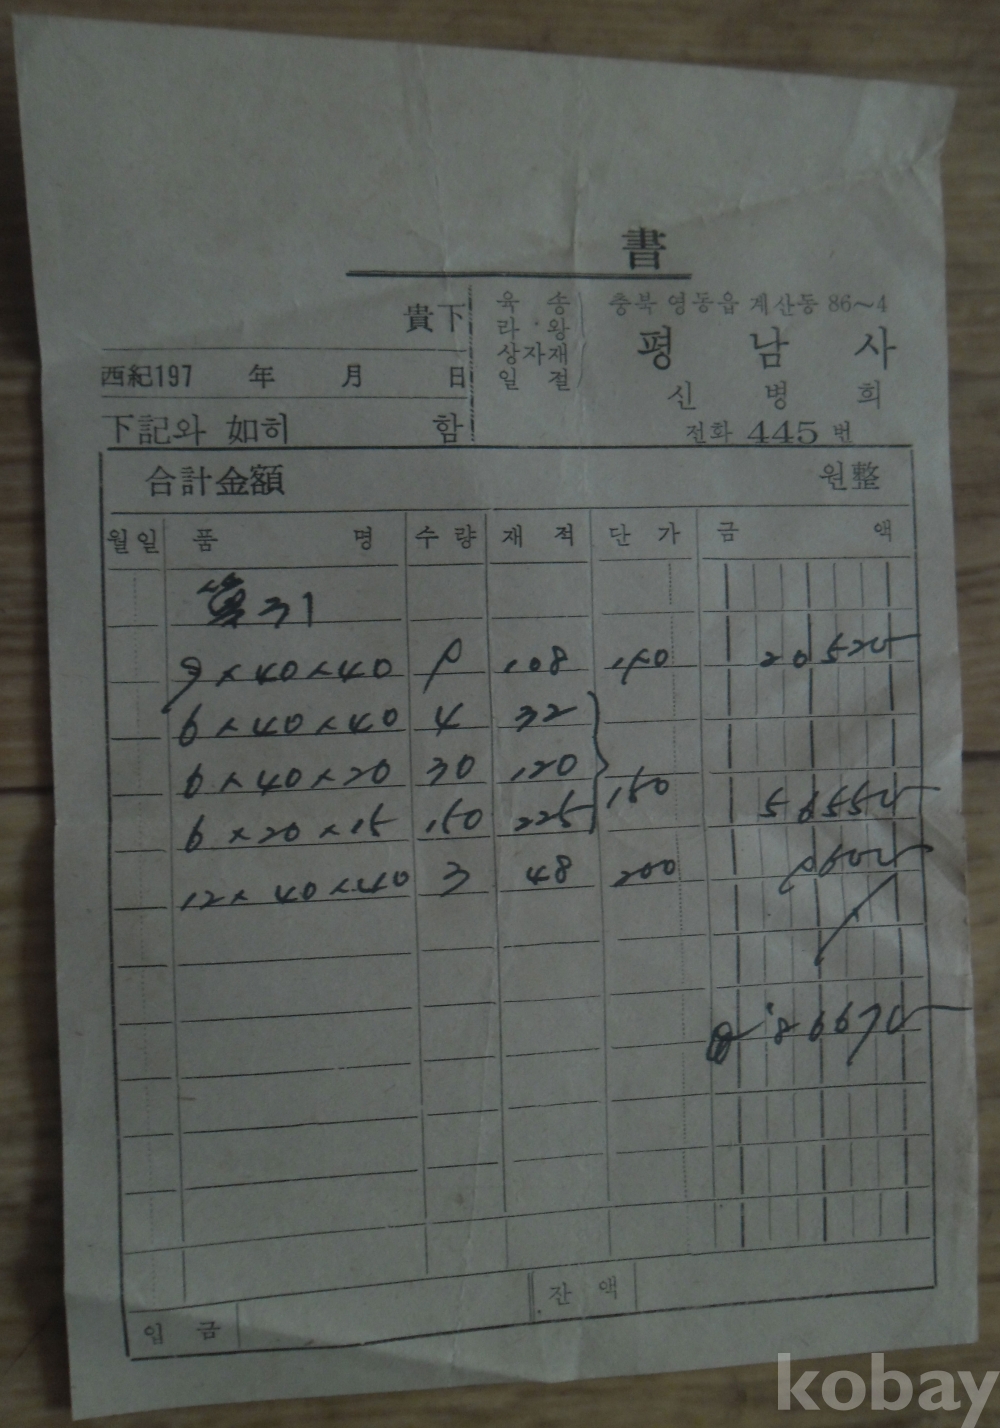 書
貴下
西紀197 年 月 日
下記와 如히 함
육 송
라 왕
상자재
일 절
충북 영동읍 계산동 86~4
평 남 사
신 병 희
전화 445 번
合計金額 원整
월일 품 명 수량 재적 단가 금 액
31
9×40×40 108 190 20520
6×40×40 4 32
6×40×20 30 120
6×20×15 150 225 150 56550
12×40×40 3 48 200 9600
86670
입 금 잔 액
kobay